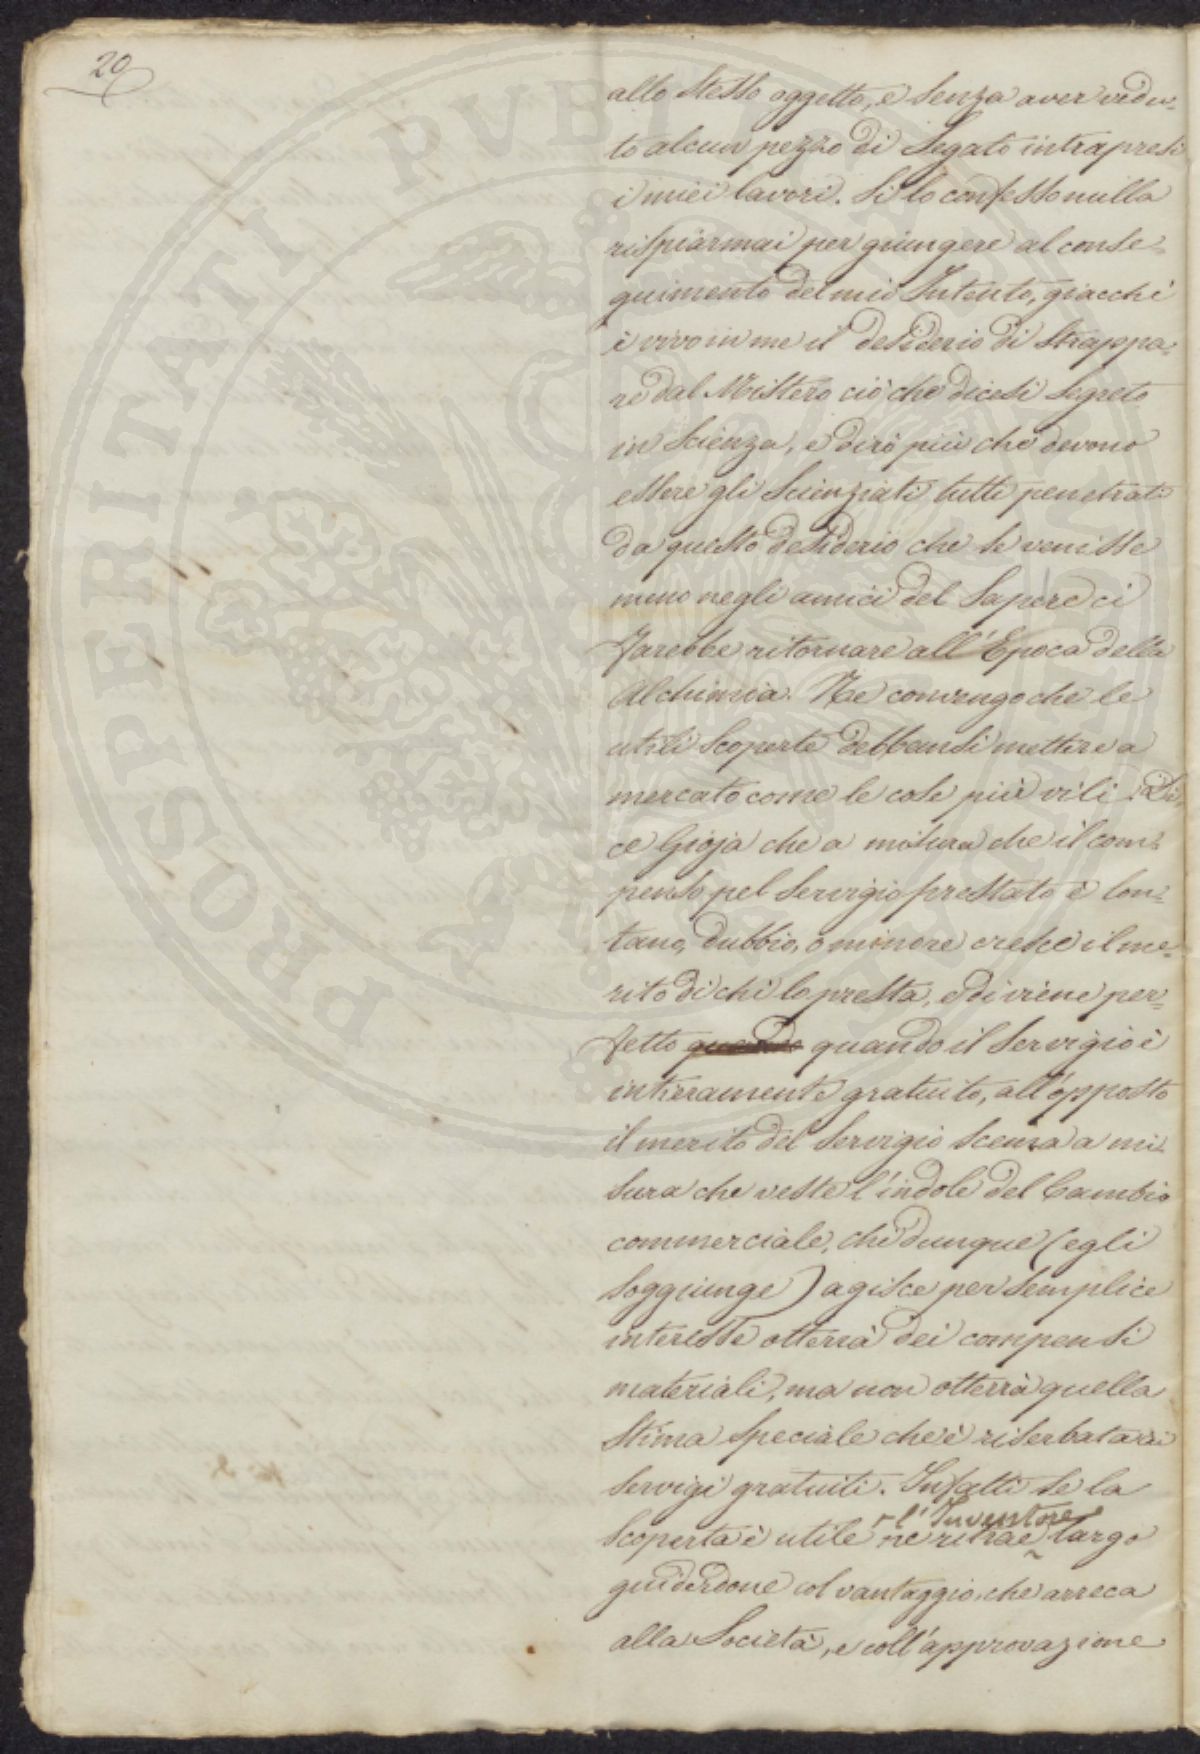 20
allo stesso oggetto, e senza aver vedu-
to alcun pezzo di Segato intrapresi
i miei lavori. Si lo confesso nulla
rispiarmai per giungere al conse-
guimento del mio Intento, giacchè
è vivo in me il desiderio di strappa-
re dal Mistero ciò che dicesi segreto
in Scienza, e dirò più che devono
essere gli Scienziati tutti penetrati
da questo desiderio che se venisse
meno negli amici del Sapere ci
farebbe ritornare all'Epoca della
Alchimia. Ne convengo che le
utili scoperte debbansi mettere a
mercato come le cose più vili. Di-
ce Gioja che a misura che il com-
penso pel servigio prestato è lon-
tano, dubbio, o minore cresce il me-
rito di chi lo presta, e diviene per-
fetto quando quando il servigio è
intieramente gratuito, all'opposto
il merito del servigio scema a mi-
sura che veste l'indole del Cambio
commerciale, chi dunque (egli
soggiunge) agisce per semplice
interesse otterrà dei compensi
materiali, ma non otterrà quella
stima speciale che è riserbata ai
servigi gratuiti. Infatti se la
l'Inventore
scoperta è utile ne ritrae largo
guiderdone col vantaggio, che arreca
alla Società, e coll'approvazione
PROSPERITATI PVBL